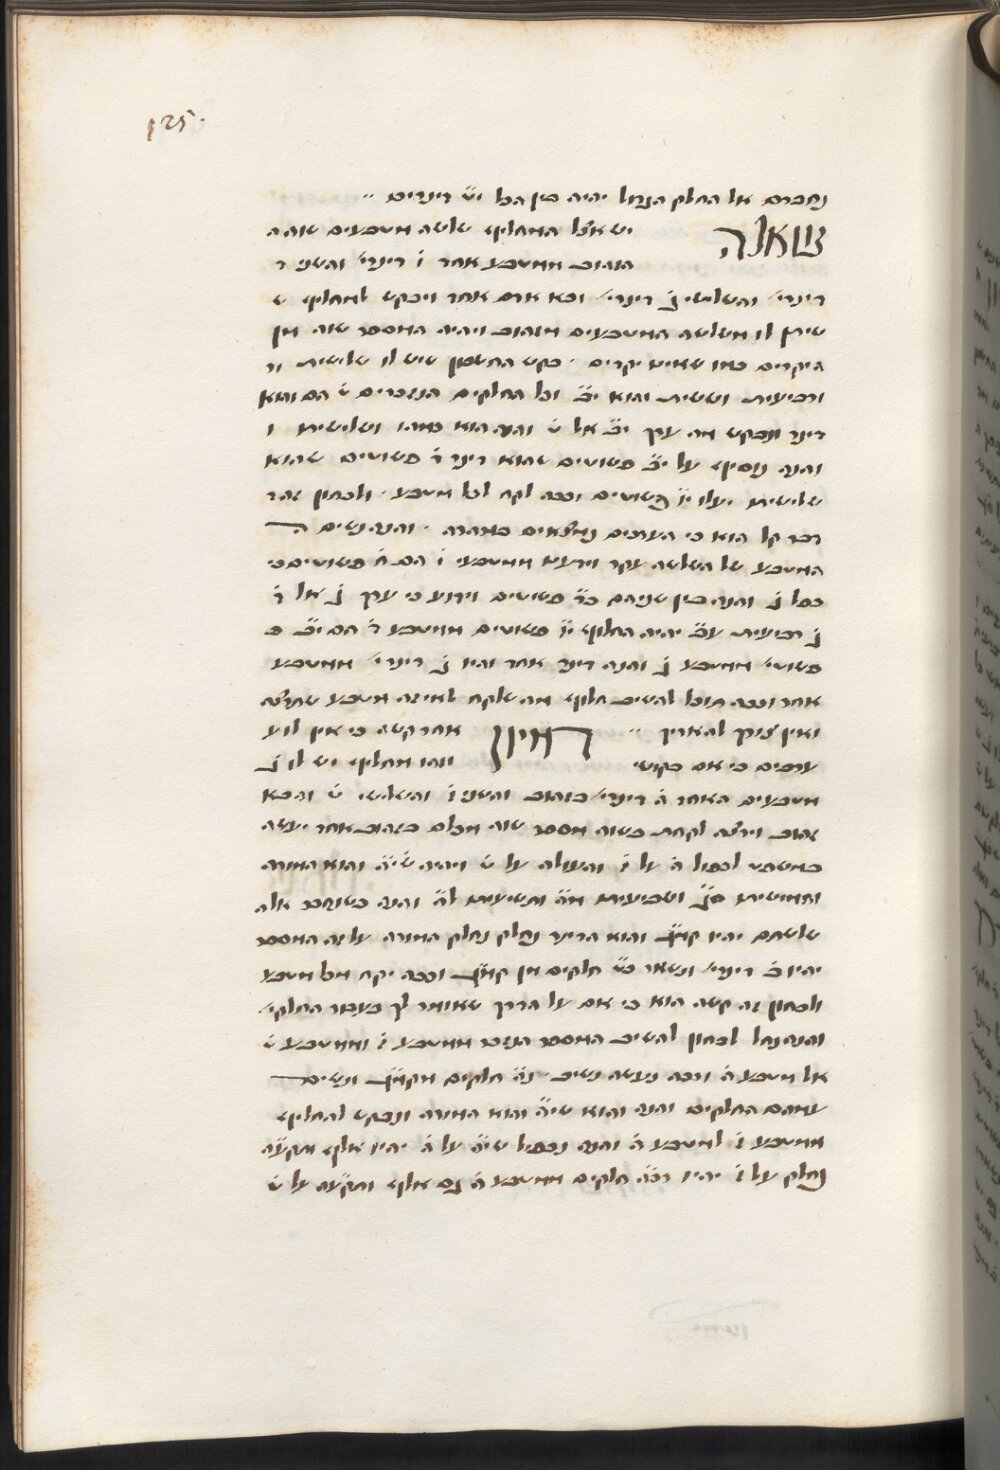 125.
נחברם אל החלק הגדול יהיה בין הכל י״ט דינרים
שאלה יש אצל המחליף שלשה מטבעים שוה ה
הזהוב ממטבע אחד ו̇ דינרי׳ והשני ד̇
דינרי׳ והשלישי ג̇ דינרי׳ ובא אדם אחד ויבקש למחליף ש
שיתן לו משלשה המטבעים מזהוב ויהיה המספר שוה מן
היקרים כמו שאינם יקרים בקש החשבון שיש לו שלישית ור
ורביעית וששית והוא י״ב וכל החלקים הנזכרים ט̇ הם והוא
דינר ונבקש מה ערך י״ב אל ט̇ והנה הוא כמהו ושלישיתו
והנה נוסיף על י״ב פשוטים שהוא דינר ד̇ פשוטים שהוא
שלישית יעלו י״ו פשוטים וככה לקח לכל מטבע ולבחון זה ד
דבר קל הוא כי הערכים נמצאים במהרה והנה נשים ה
המטבע של השלשה עקר וידענו ממטבעי ו̇ הם ח̇ פשוטים כי
כפל ג̇ והנה בין שניהם כ״ד פשוטים וידוע כי ערך ג̇ אל ד̇
ג̇ רביעיות ע״כ יהיה החלוף י״ו פשוטים ממטבע ד̇ הם י״ב פ
פשוטי׳ ממטבע ג̇ והנה דינר אחד והיו ג̇ דינרי׳ ממטבע
אחד וככה תוכל להשיב חלוף מה שלקח לאיזה מטבע שתרצה
ואין צורך להאריך דמיון אחר קשה כי אין לו ע
ערכים כי אם בקושי וזהו מחליף יש לו ג̇
מטבעים האחד ה̇ דינרי׳ בזהוב והשני ז̇ והשלישי ט̇ והבא
זהוב וירצה לקחת בשוה מספר שוה מכלם בזהוב אחד יעשה
כמשפט לכפול ה̇ על ז̇ והעולה על ט̇ ויהיה שי״ה והוא המורה
וחמישיתו ס״ג ושביעיתו מ״ה ותשיעיתו ל״ה והנה כשנחבר אלה
שלשתם יהיו קמ״ג והוא הדינר נחלק נחלק המורה על זה המספר
יהיו ב̇ דינרי׳ ונשאר כ״ט חלקים מן קמ״ג וככה יקח מכל מטבע
ולבחון זה קשה הוא כי אם על הדרך שאומר לך בעבור החלקי׳
והנה נחל לבחון להשיב המספר הנזכר ממטבע ז̇ וממטבע ט̇
אל מטבע ה̇ וככה נעשה נשיב נ״ה חלקים מקמ״ג ונשים
עמהם החלקים והנה והוא שי״ה והוא המורה ונבקש להחליף
ממטבע ז̇ למטבע ה̇ והנה נכפול שי״ה על ה̇ יהיו אלף תקע״ה
נחלק על ז̇ יהיו רכ״ה חלקים ממטבע ה̇ גם אלף ותקע״ה על ט̇